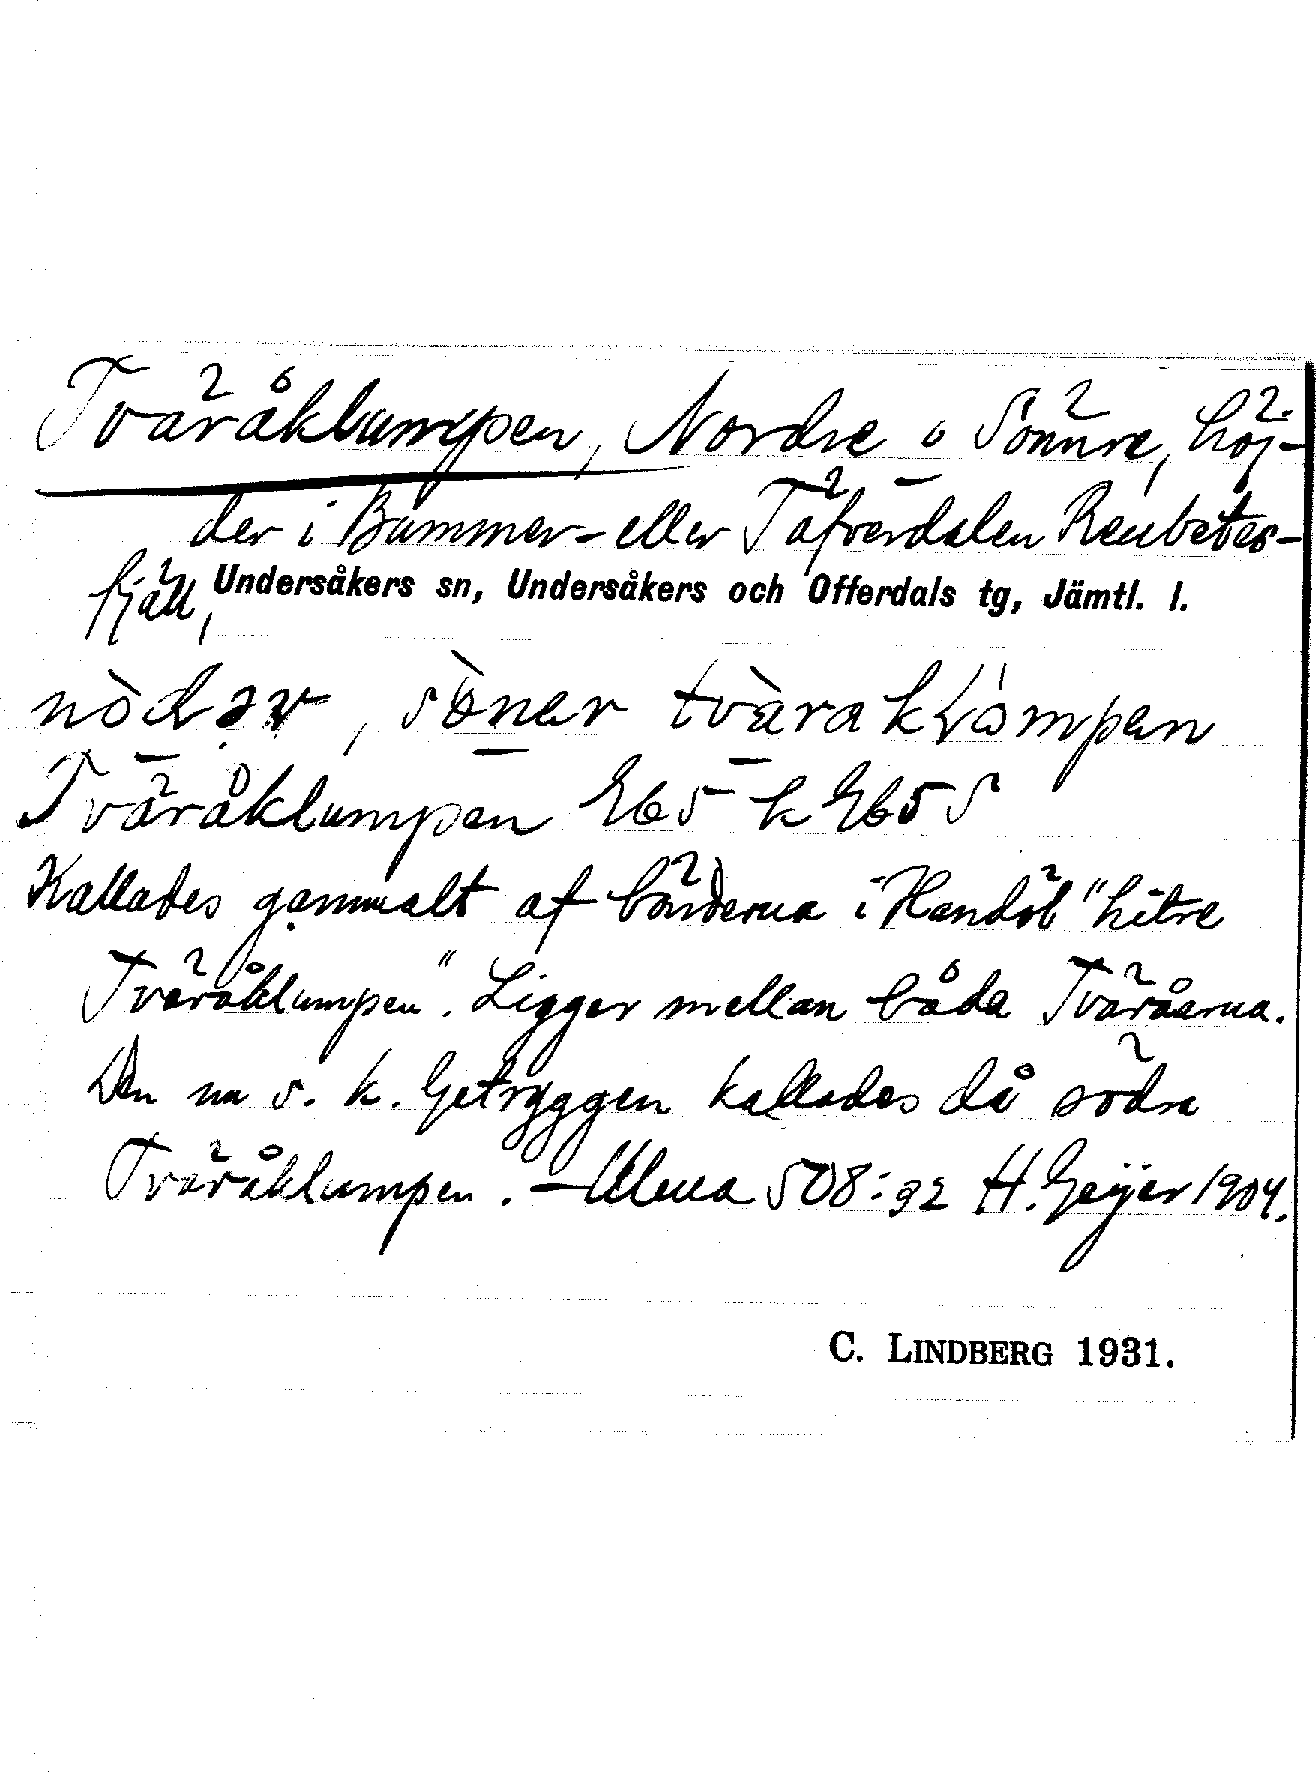 Tväråklumpen, Nordre o Sönnre, höj-
der i Bummer- eller Täfverdalen Renbetes-
fjäll, Undersåkers sn, Undersåkers och Offerdals tg, Jämtl. l.
Tväråklumpen Gb 5 k Gb 5 S
Kallades gammalt af bönderna i Handöl "hitre
Tväråklumpen". Ligger mellan båda Tväråarna.
Den nu s. k. Getryggen kallades då södra
Tväråklumpen. – Ulma 508:32 H. Geijer 1904.
C. LINDBERG 1931.